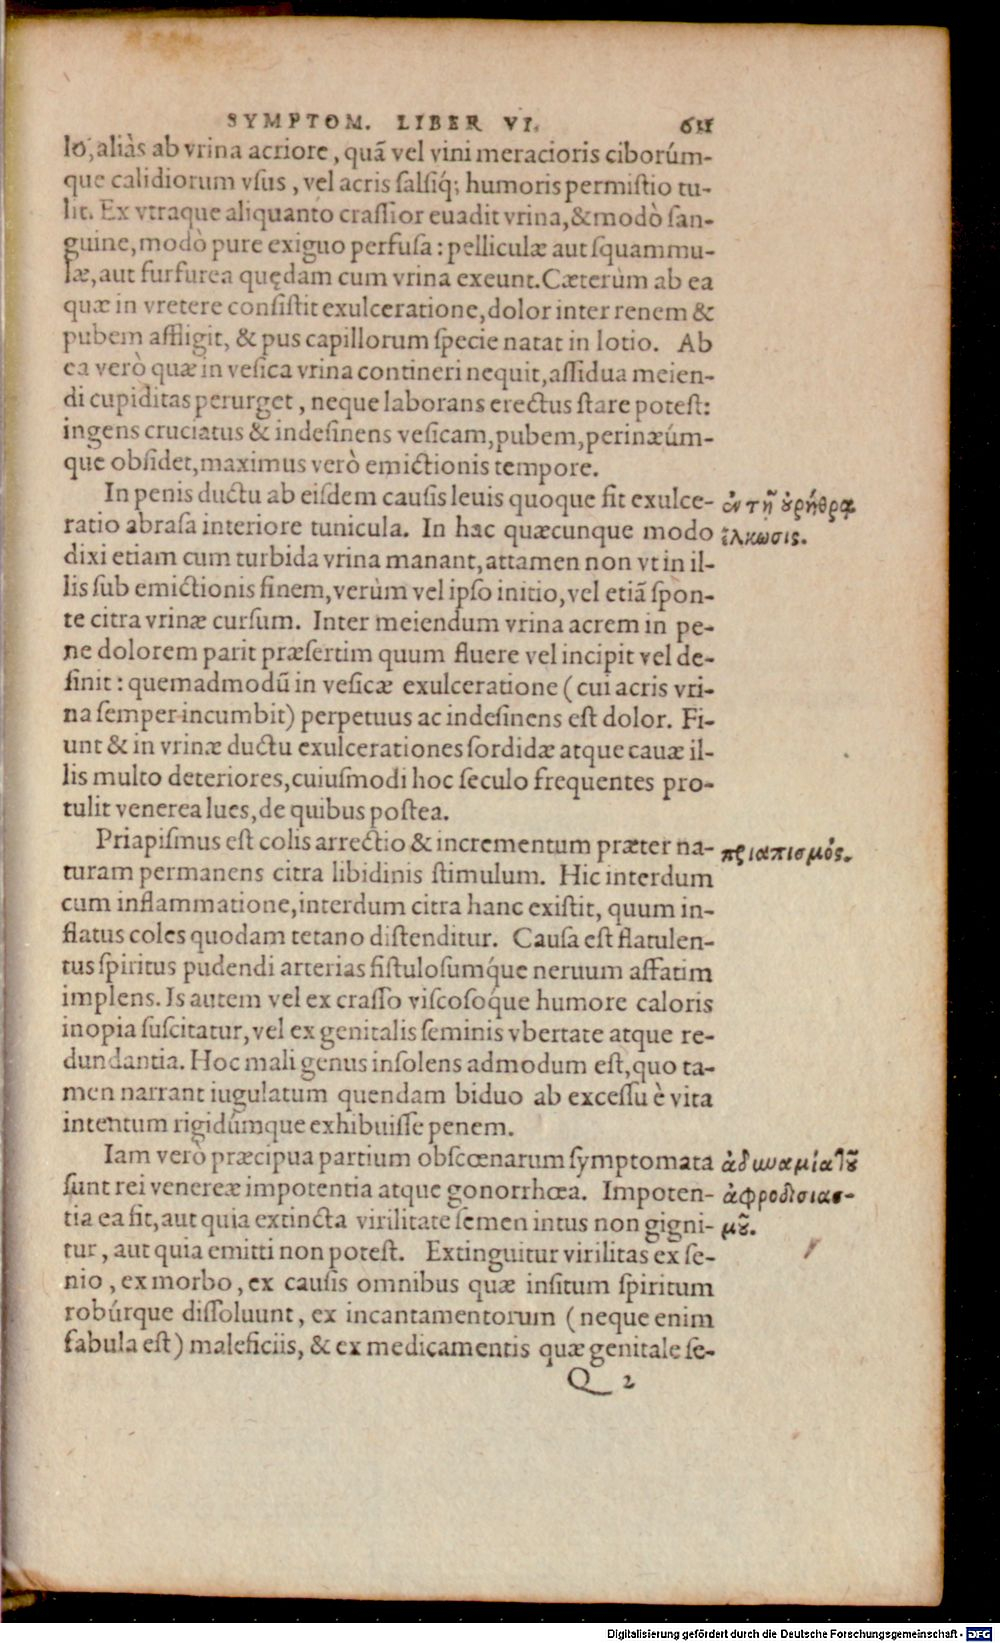 SYMPTOM. LIBER VI. 611
lo, aliàs ab vrina acriore, quã vel vini meracioris ciborúm-
que calidiorum vsus, vel acris salsiq́; humoris permistio tu-
lit. Ex vtraque aliquanto crassior euadit vrina, & modò san-
guine, modò pure exiguo perfusa: pelliculæ aut squammu-
læ, aut furfurea quędam cum vrina exeunt. Cæterùm ab ea
quæ in vretere consistit exulceratione, dolor inter renem &
pubem affligit, & pus capillorum specie natat in lotio. Ab
ea verò quæ in vesica vrina contineri nequit, assidua meien-
di cupiditas perurget, neque laborans erectus stare potest:
ingens cruciatus & indesinens vesicam, pubem, perinæúm-
que obsidet, maximus verò emictionis tempore.
In penis ductu ab eisdem causis leuis quoque fit exulce- ἐν τῇ οὐρήθρᾳ
ratio abrasa interiore tunicula. In hac quæcunque modo ἕλκωσις.
dixi etiam cum turbida vrina manant, attamen non vt in il-
lis sub emictionis finem, verùm vel ipso initio, vel etiã spon-
te citra vrinæ cursum. Inter meiendum vrina acrem in pe-
ne dolorem parit præsertim quum fluere vel incipit vel de-
sinit: quemadmodũ in vesicæ exulceratione (cui acris vri-
na semper incumbit) perpetuus ac indesinens est dolor. Fi-
unt & in vrinæ ductu exulcerationes sordidæ atque cauæ il-
lis multo deteriores, cuiusmodi hoc seculo frequentes pro-
tulit venerea lues, de quibus postea.
Priapismus est colis arrectio & incrementum præter na- πριαπισμός.
turam permanens citra libidinis stimulum. Hic interdum
cum inflammatione, interdum citra hanc existit, quum in-
flatus coles quodam tetano distenditur. Causa est flatulen-
tus spiritus pudendi arterias fistulosumq́ue neruum affatim
implens. Is autem vel ex crasso viscosoq́ue humore caloris
inopia suscitatur, vel ex genitalis seminis vbertate atque re-
dundantia. Hoc mali genus insolens admodum est, quo ta-
men narrant iugulatum quendam biduo ab excessu è vita
intentum rigidúmque exhibuisse penem.
Iam verò præcipua partium obscœnarum symptomata ἀδυναμία τοῦ
sunt rei venereæ impotentia atque gonorrhœa. Impoten- ἀφροδισιασ-
tia ea fit, aut quia extincta virilitate semen intus non gigni- μοῦ.
tur, aut quia emitti non potest. Extinguitur virilitas ex se-
nio, ex morbo, ex causis omnibus quæ insitum spiritum
robúrque dissoluunt, ex incantamentorum (neque enim
fabula est) maleficiis, & ex medicamentis quæ genitale se-
Q 2
Digitalisierung gefördert durch die Deutsche Forschungsgemeinschaft - DFG